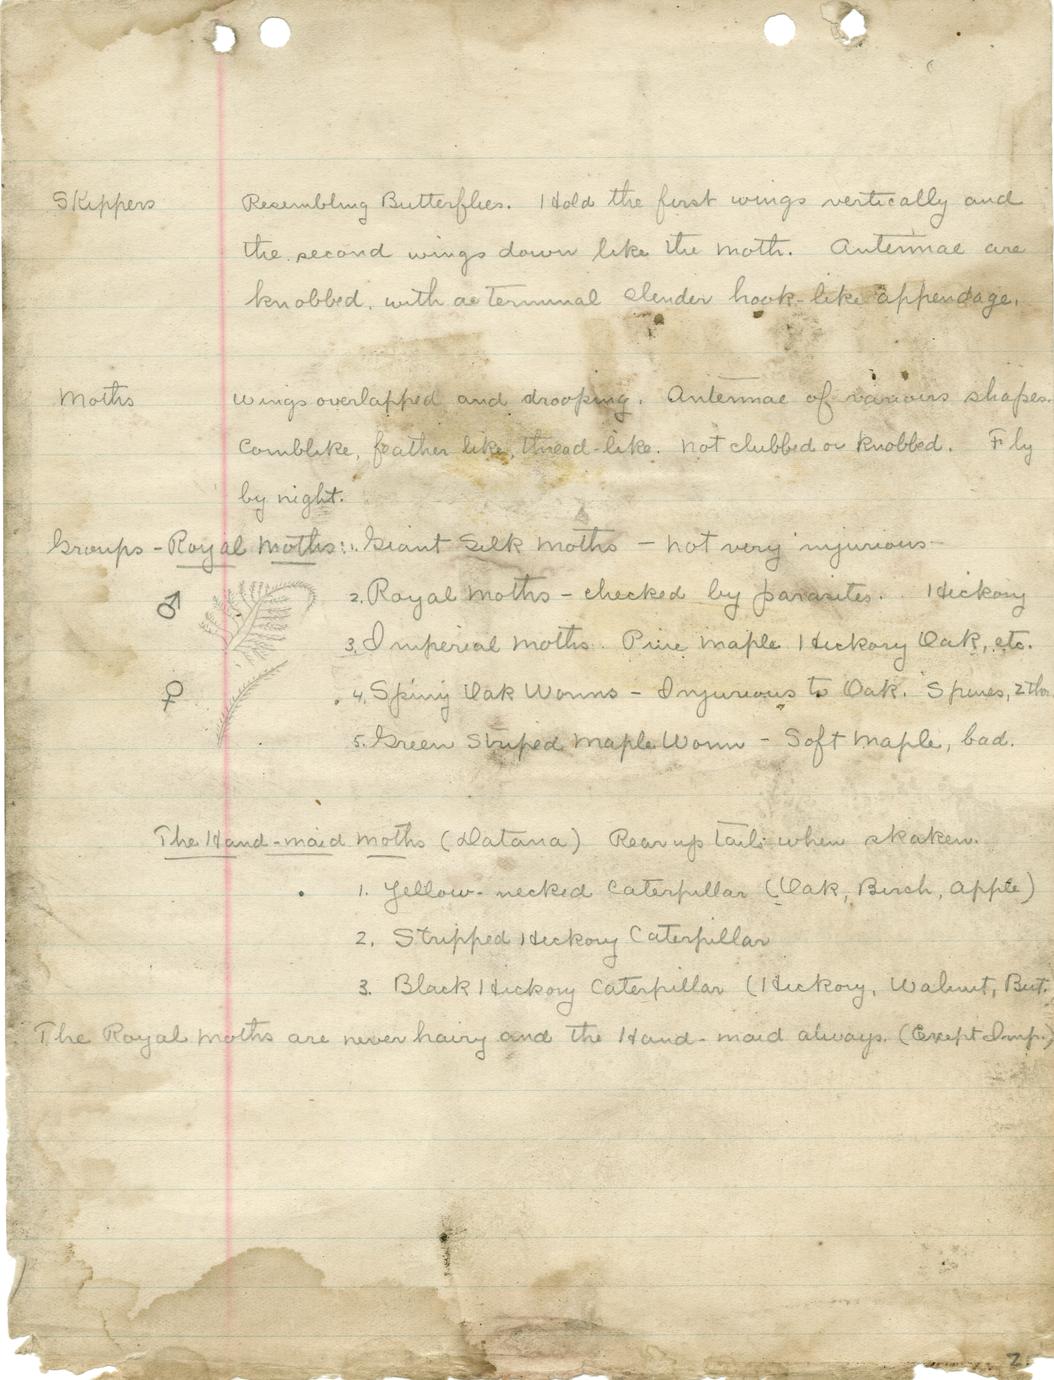 Skippers Resembling Butterflies. Hold the first wings vertically and
the second wings down like the moth. Antennae are
knobbed, with a terminal slender hook-like appendage.
Moths Wings overlapped and drooping. Antennae of various shapes.
Comblike, feather like, thread-like. not clubbed or knobbed. Fly
by night.
Groups - Royal Moths: 1. Giant Silk Moths - not very injurious -
♂ 2. Royal Moths - checked by parasites. Hickory
3. Imperial Moths. Pine Maple Hickory Oak, etc.
♀ 4. Spiny Oak Worms - Injurious to Oak. Spines, 2
5. Green Striped Maple Worm - Soft Maple, bad.
The Hand-maid Moths (Datana) Rear up tails when skaken.
1. Yellow-necked Caterpillar (Oak, Birch, Apple)
2. Stripped Hickory Caterpillar
3. Black Hickory Caterpillar (Hickory, Walnut, But.
The Royal Moths are never hairy and the Hand-maid always. (Exept Imp.)
2